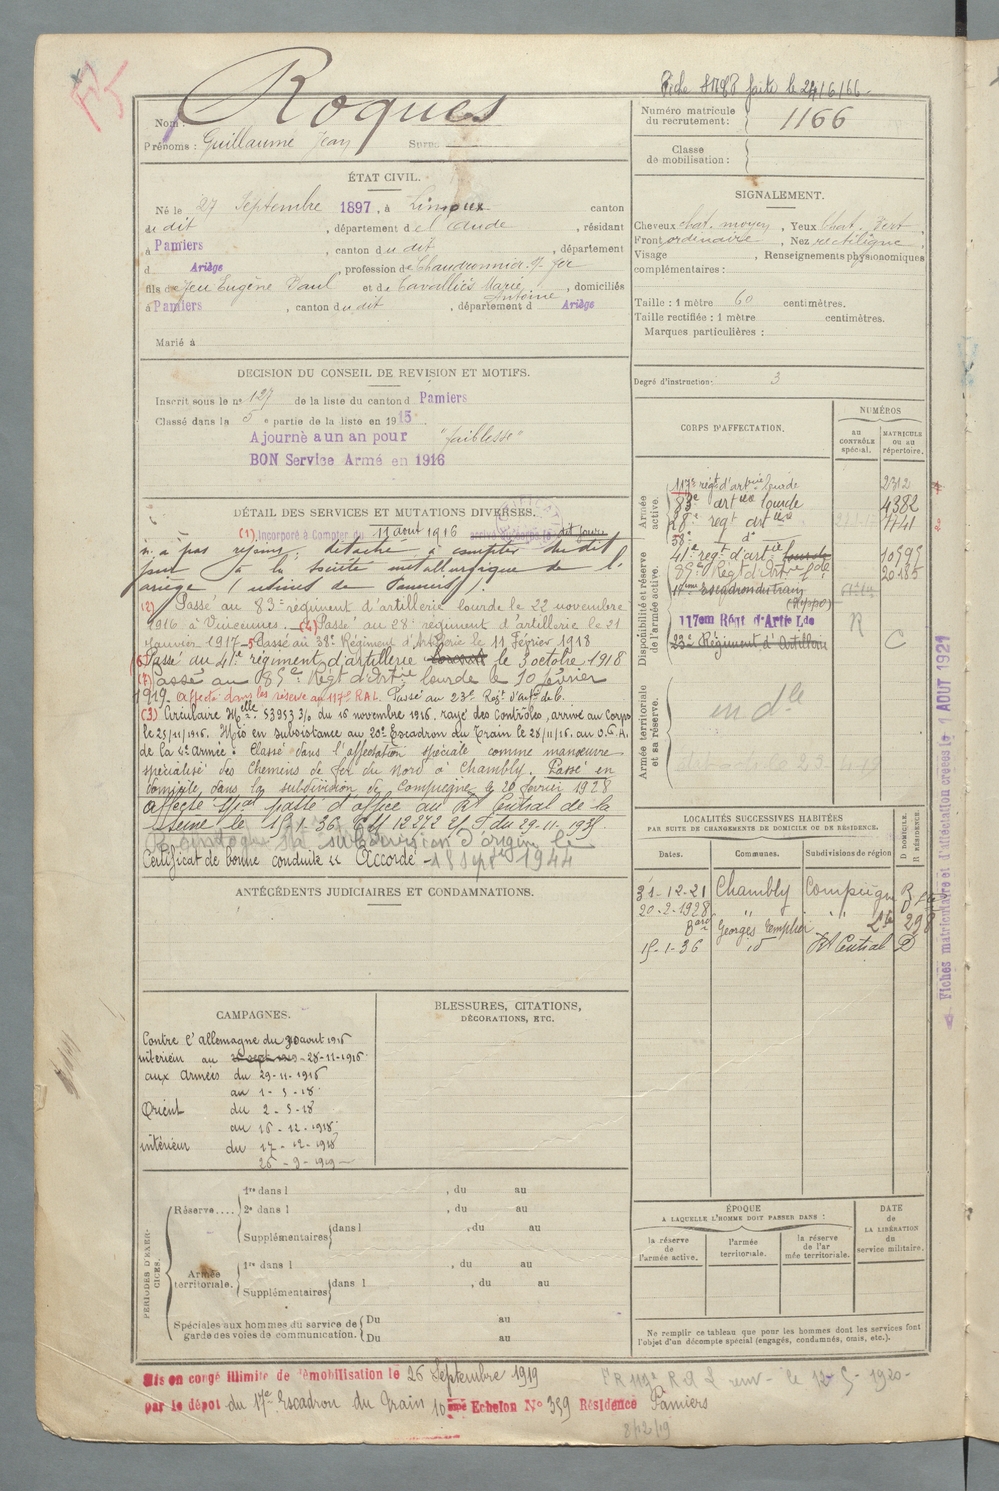 Fiche faite le 24/6/66
Roques
Nom :
Prénoms : Guillaume Jean Surnom
Numéro matricule du recrutement : 1166
Classe de mobilisation :
ÉTAT CIVIL.
Né le 27 Septembre 1897, à Limoux canton
du dit, département de l'Aude, résidant
à Pamiers, canton du dit, département
d Ariège, profession de Chaudronnier s. fer
fils de feu Eugène Paul et de Cavalliès Marie Antoine, domiciliés
à Pamiers, canton du dit, département d Ariège
Marié à
SIGNALEMENT.
Cheveux chat. moyen, Yeux chat. vert,
Front ordinaire, Nez rectiligne,
Visage , Renseignements physionomiques
complémentaires :
Taille : 1 mètre 60 centimètres.
Taille rectifiée : 1 mètre centimètres.
Marques particulières :
Degré d'instruction : 3
DECISION DU CONSEIL DE REVISION ET MOTIFS.
Inscrit sous le n° 127 de la liste du canton d Pamiers
Classé dans la 5e partie de la liste en 1915
Ajourné a un an pour "faiblesse"
BON Service Armé en 1916
DÉTAIL DES SERVICES ET MUTATIONS DIVERSES.
(1) Incorporé à Compter du 11 août 1916 arrivé au corps le dit jour
n'a pas rejoint ; détaché à compter du dit
jour à la Société métallurgique de l'
Ariège (usines de Pamiers).
(2) Passé au 83e régiment d'artillerie lourde le 22 novembre
1916 à Vincennes. (4) Passé au 28e régiment d'artillerie le 21
janvier 1917 - 5 Passé au 38e Régiment d'Artillerie le 11 Février 1918
(6) Passé au 41e régiment d'artillerie lourde le 3 octobre 1918
(7) Passé au 85e Régt d'Artie lourde le 10 février
1919. Affecté dans les réserve au 117e RAL. Passé au 23e Régt d'art. de C.
(3) Circulaire Mlle 53953 3/0 du 15 novembre 1916, rayé des Contrôles, arrivé au Corps
le 25/11/1916. Mis en subsistance au 20e Escadron du Train le 28/11/16. au
de la 4e armée. Classé dans l'affectation spéciale comme manœuvre
spécialisé des Chemins de fer du Nord à Chambly. Passé en
domicile dans la subdivision de Compiègne le 20 février 1928
Affecté spal passé d'office au Rt Central de la
Seine le 15-1-36 12272 du 29-11-1935.
subdivision d'origine le
Certificat de bonne conduite "Accordé" - 18 sept 1944
CORPS D'AFFECTATION.
NUMÉROS
AU CONTRÔLE SPÉCIAL.
MATRICULE OU AU RÉPERTOIRE.
Armée active.
117e régt d'artie lourde 2312
83e artie lourde 4382
28e régt artie 4441
38e do
41e régt d'artie lourde 10595
85e Régt d'Artie lde 20485
Disponibilité et réserve de l'armée active.
17ème Escadron du train
117em Régt d'Artie Lde R
23e Régiment d'Artillerie C
Armée territoriale et sa réserve.
en dle
LOCALITÉS SUCCESSIVES HABITÉES
PAR SUITE DE CHANGEMENTS DE DOMICILE OU DE RÉSIDENCE.
Dates. Communes. Subdivisions de région D DOMICILE. R RÉSIDENCE.
31-12-21 Chambly Compiègne R
20-2-1928 " " "
Georges 298
15-1-36 id Rt Central D
Fiches matriculaire et d'affectation créées le 1 AOUT 1921
ANTÉCÉDENTS JUDICIAIRES ET CONDAMNATIONS.
CAMPAGNES.
Contre l'allemagne du 30 aout 1916
intérieur au 26 sept 1919 - 28-11-1916
aux armées du 29-11-1916
au 1-5-18
Orient du 2-5-18
au 16-12-1918
intérieur du 17-12-1918
26-9-1919
BLESSURES, CITATIONS,
DÉCORATIONS, ETC.
PÉRIODES D'EXERCICES.
Réserve....
1re dans l , du au
2e dans l , du au
Supplémentaires dans l , du au
Armée territoriale.
1re dans l , du au
Supplémentaires dans l , du au
Spéciales aux hommes du service de
garde des voies de communication.
Du au
Du au
ÉPOQUE
A LAQUELLE L'HOMME DOIT PASSER DANS :
la réserve de l'armée active.
l'armée territoriale.
la réserve de l'armée territoriale.
DATE de LA LIBÉRATION du service militaire.
Ne remplir ce tableau que pour les hommes dont les services font
l'objet d'un décompte spécial (engagés, condamnés, omis, etc.).
Mis en congé illimité de démobilisation le 26 Septembre 1919
par le dépôt du 17e Escadron du Train 10ème Echelon N° 359 Résidence Pamiers
8/12/19